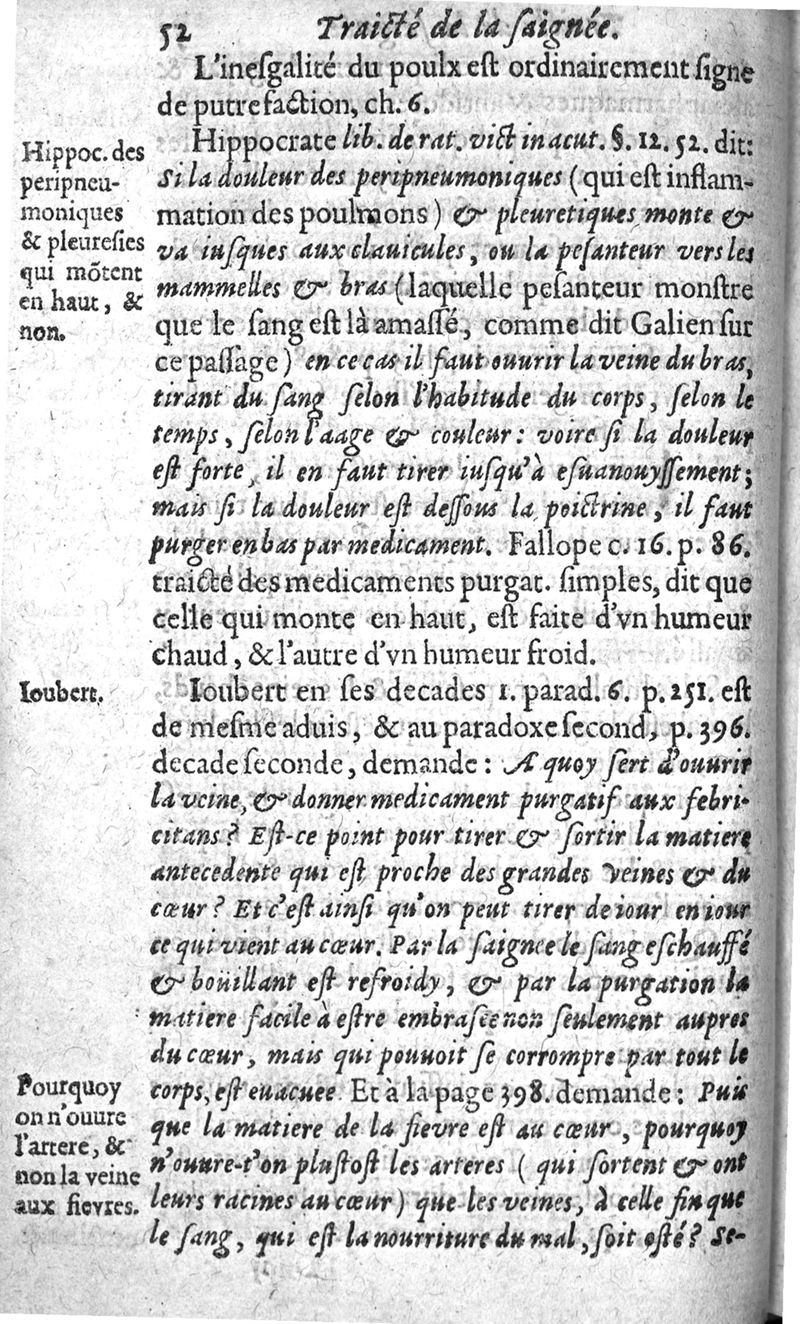 52 Traicté de la ſaignée.
L'ineſgalité du poulx eſt ordinairement ſigne
de putrefaction, ch. 6.
Hippocrate lib. de rat. vict in acut. §. 12. 52. dit:
Si la douleur des peripneumoniques (qui eſt inflam-
mation des poulmons) & pleuretiques monte &
va iuſques aux clauicules, ou la peſanteur vers les
mammelles & bras (laquelle peſanteur monſtre
que le ſang eſt là amaſſé, comme dit Galien ſur
ce paſſage) en ce cas il faut ouurir la veine du bras,
tirant du ſang ſelon l'habitude du corps, ſelon le
temps, ſelon l'aage & couleur: voire ſi la douleur
eſt forte, il en faut tirer iuſqu'à eſuanouyſſement;
mais ſi la douleur eſt deſſous la poictrine, il faut
purger en bas par medicament. Fallope c. 16. p. 86.
traicté des medicaments purgat. ſimples, dit que
celle qui monte en haut, eſt faite d'vn humeur
chaud, & l'autre d'vn humeur froid.
Ioubert en ſes decades 1. parad. 6. p. 251. eſt
de meſme aduis, & au paradoxe ſecond, p. 396.
decade ſeconde, demande: A quoy ſert d'ouurir
la veine, & donner medicament purgatif aux febri-
citans? Eſt-ce point pour tirer & ſortir la matiere
antecedente qui eſt proche des grandes veines & du
cœur? Et c'eſt ainſi qu'on peut tirer de iour en iour
ce qui vient au cœur. Par la ſaignee le ſang eſchauffé
& boüillant eſt refroidy, & par la purgation la
matiere facile à eſtre embraſee non ſeulement aupres
du cœur, mais qui pouuoit ſe corrompre par tout le
corps, eſt euacuee. Et à la page 398. demande: Puis
que la matiere de la fievre eſt au cœur, pourquoy
n'ouure-t'on pluſtoſt les arteres (qui ſortent & ont
leurs racines au cœur) que les veines, à celle fin que
le ſang, qui eſt la nourriture du mal, ſoit oſté? Se-
Hippoc. des
peripneu-
moniques
& pleureſies
qui mõtent
en haut, &
non.
Ioubert.
Pourquoy
on n'ouure
l'artere, &
non la veine
aux fievres.